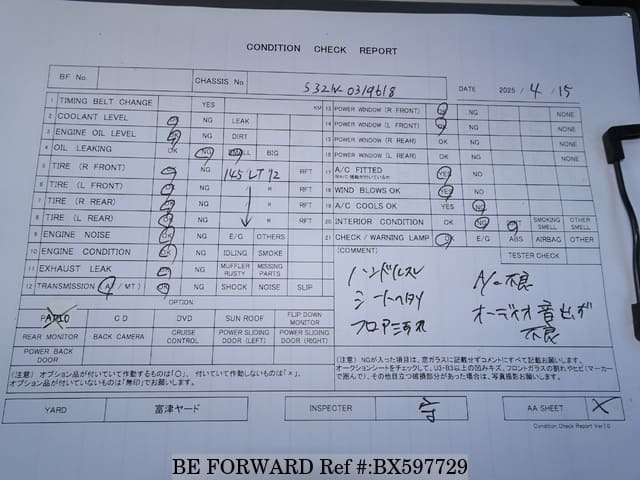 CONDITION CHECK REPORT
BF No. CHASSIS No S321V-0319618 DATE 2025 / 4 / 15
1 TIMING BELT CHANGE YES KM
2 COOLANT LEVEL OK NG LEAK
3 ENGINE OIL LEVEL OK NG DIRT
4 OIL LEAKING OK NG SMALL BIG
5 TIRE (R FRONT) OK NG 145 LT 12 RFT
6 TIRE (L FRONT) OK NG " R RFT
7 TIRE (R REAR) OK NG R RFT
8 TIRE (L REAR) OK NG R RFT
9 ENGINE NOISE OK NG E/G OTHERS
10 ENGINE CONDITION OK NG IDLING SMOKE
11 EXHAUST LEAK OK NG MUFFLER RUSTY MISSING PARTS
12 TRANSMISSION (A / MT) OK NG SHOCK NOISE SLIP
OPTION
RADIO CD DVD SUN ROOF FLIP DOWN MONITOR
REAR MONITOR BACK CAMERA CRUISE CONTROL POWER SLIDING DOOR (LEFT) POWER SLIDING DOOR (RIGHT)
POWER BACK DOOR
(注意) オプション品が付いていて作動するものは「○」、付いていて作動しないものは「×」、
オプション品が付いていないものは「無印」でお願いします。
13 POWER WINDOW (R FRONT) OK NG NONE
14 POWER WINDOW (L FRONT) OK NG NONE
15 POWER WINDOW (R REAR) OK NG NONE
16 POWER WINDOW (L REAR) OK NG NONE
17 A/C FITTED YES NO
18 WIND BLOWS OK YES NO
19 A/C COOLS OK YES NO
20 INTERIOR CONDITION OK NG SMOKING SMELL OTHER SMELL
21 CHECK / WARNING LAMP OK E/G ABS AIRBAG OTHER
(COMMENT) TESTER CHECK
ハンドルスレ A/C不良
シートヘタリ オーディオ音
フロア 不良
(注意) NGが入った項目は、窓ガラスに記載せずコメントにすべて記載お願いします。
オークションシートをチェックして、U3・B3以上の凹みキズ、フロントガラスの割れやヒビ(マーカー
で囲んで)、その他目立つ破損部分があった場合は、写真撮影お願いします。
YARD 富津ヤード INSPECTER 守 AA SHEET ×
Condition Check Report Ver1.0
BE FORWARD Ref #:BX597729